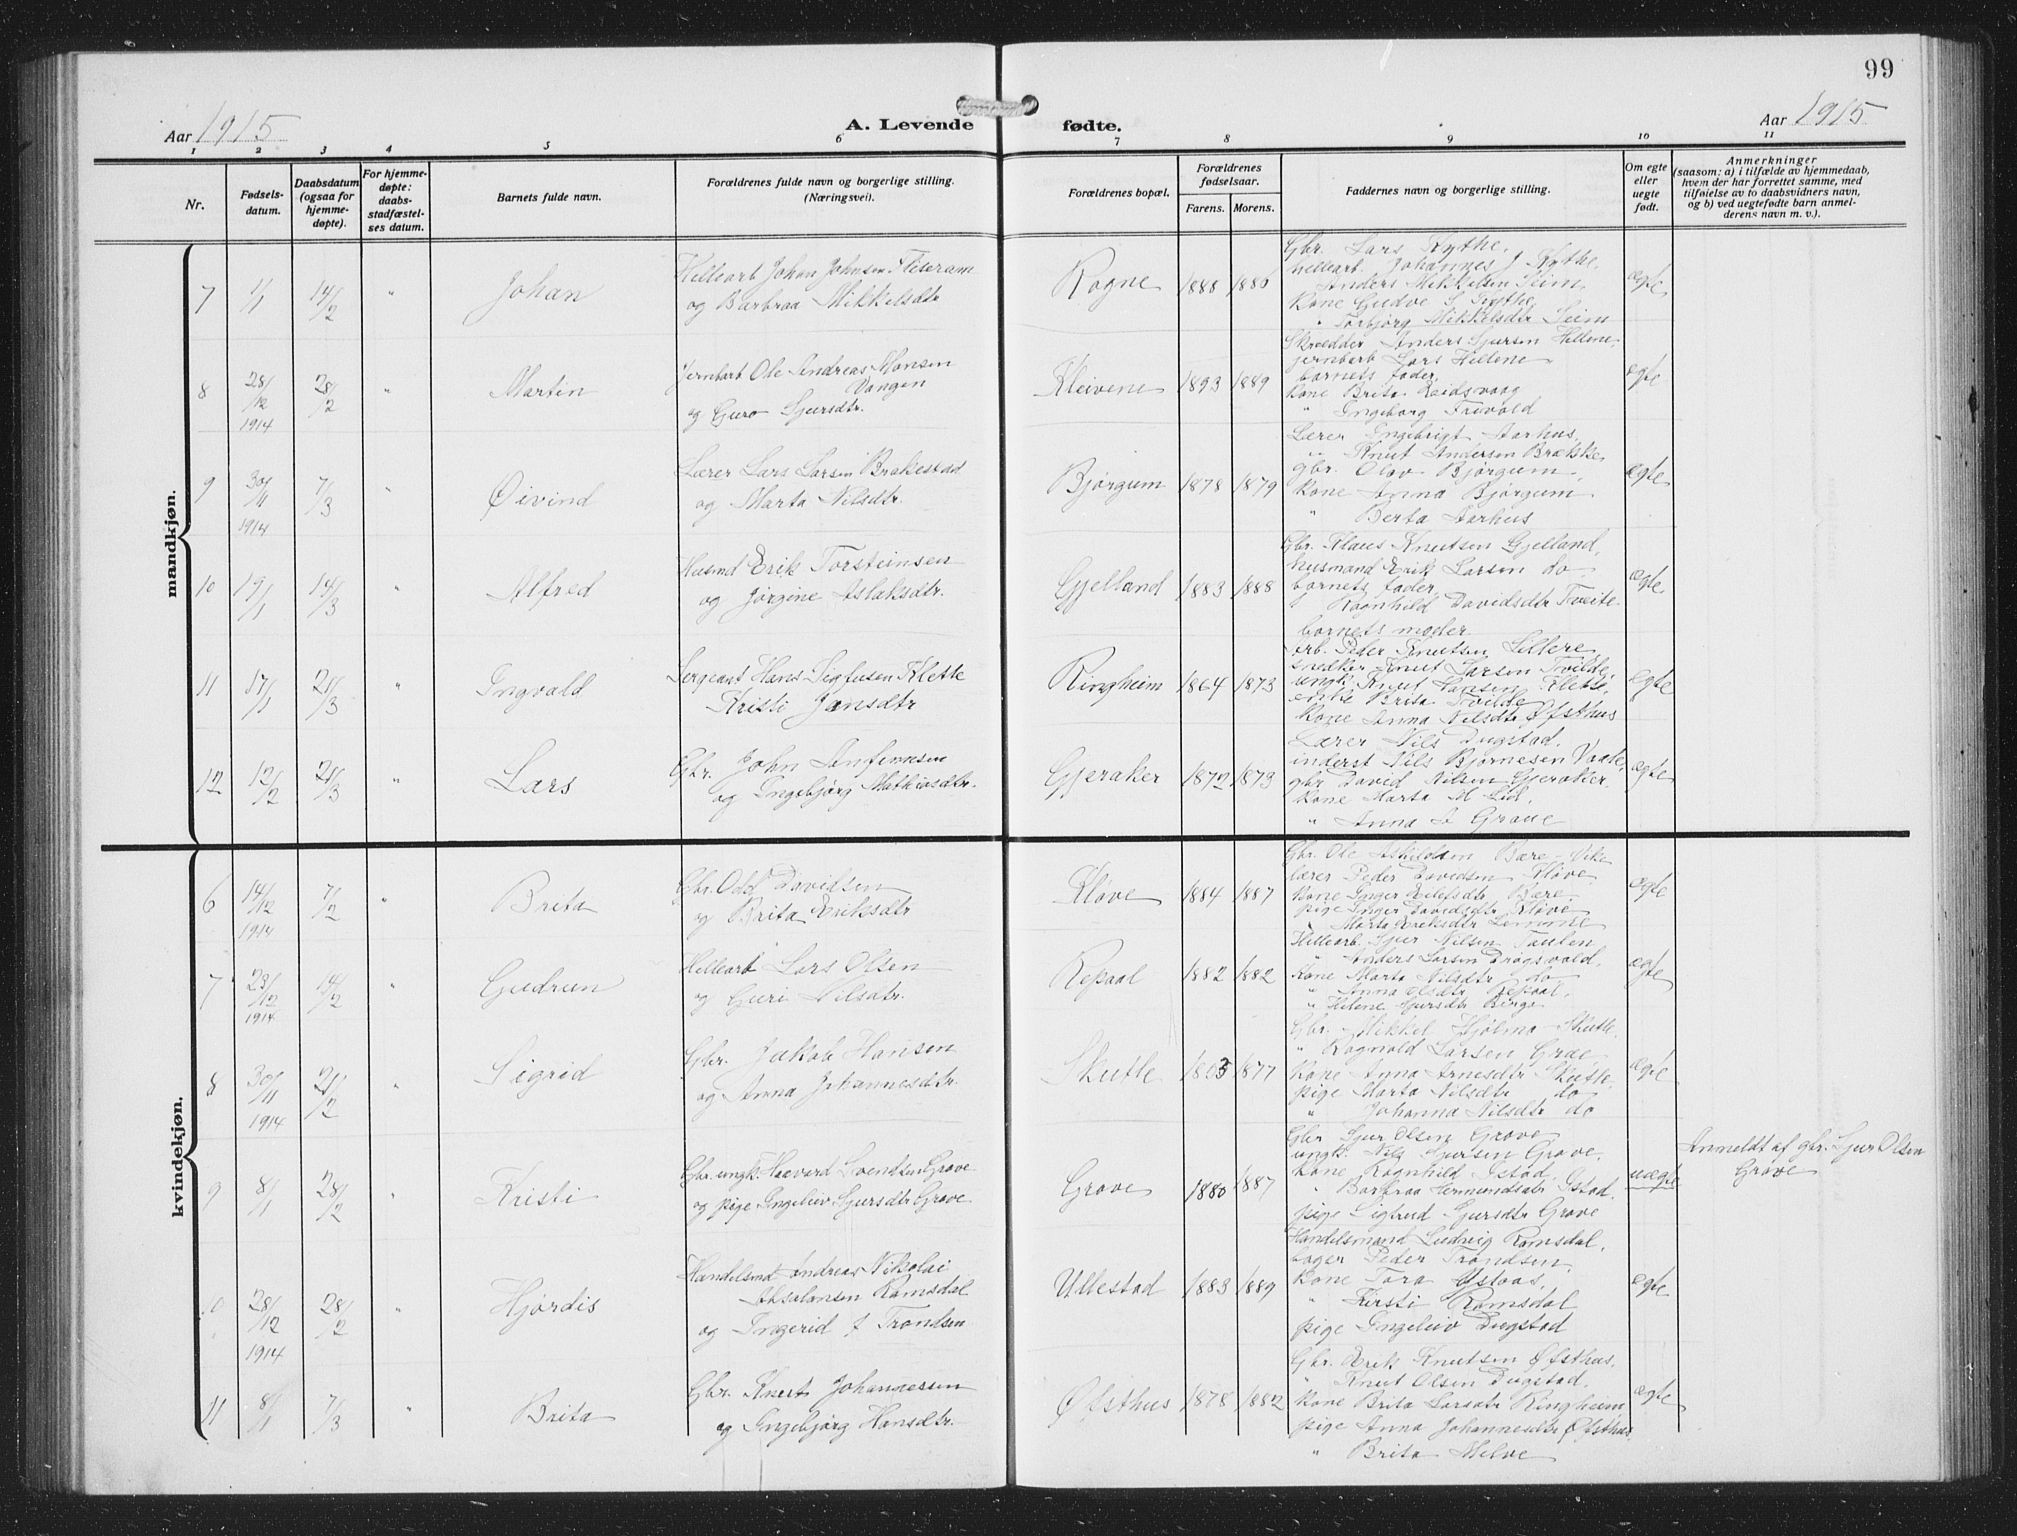 99
Aar 1915
A. Levende fødte.
Aar 1915
1 2 3 4 5 6 7 8 9 10 11
Nr.
Fødsels-
datum.
Daabsdatum
(ogsaa for
hjemme-
døpte).
For hjemme-
døpte:
daabs-
stadfæstel-
ses datum.
Barnets fulde navn.
Forældrenes fulde navn og borgerlige stilling.
(Næringsvei).
Forældrenes bopæl.
Forældrenes
fødselsaar.
Farens. Morens.
Faddernes navn og borgerlige stilling.
Om egte
eller
uegte
født.
Anmerkninger
(saasom: a) i tilfælde av hjemmedaab,
hvem der har forrettet samme, med
tilføielse av to daabsvidners navn,
og b) ved uegtefødte barn anmel-
derens navn m. v.).
mandkjøn.
7 1/1 14/2 " Johan
Helleart Johan Johnsen
og Barbraa Mikkelsdtr
Rogne 1888 1886
Gbr. Lars Kythe,
hellearb. Johannes J Kythe,
Anders Mikkelsen Seim,
Kone Gudve S Kythe,
" Torbjørg Mikkelsdtr Seim
ægte
8 28/12 1914 28/2 " Martin
Jernbarb Ole Andreas Monsen
Vangen
og Guro Sjursdtr.
Kleivene 1893 1889
Skrædder Anders Sjursen Hellene,
jernbarb Lars Hellene
barnets fader,
Kone Brita Reidsvaag
" Ingeborg Trivold
ægte
9 30/11 1914 7/3 " Øivind
Lærer Lars Larsen Brakestad
og Marta Nilsdtr.
Bjørgum 1878 1879
Lærer Ingebrigt Aarhus,
" Knut Andersen Brække,
gbr. Olav Bjørgum,
Kone Anna Bjørgum
" Berta Aarhus
ægte
10 19/1 14/3 " Alfred
Husmd Erik Torsteinsen
og Jørgine Aslaksdtr.
Gjelland 1883 1888
Gbr. Klaus Knutsen Gjelland,
husmand Erik Larsen do.
barnets fader,
Ragnhild Davidsdtr Tveite
barnets moder
ægte
11 17/1 21/3 " Ingvald
Sergeant Hans Sigfusen Klette
Kristi Jansdtr
Ringheim 1864 1873
Arb. Peder Knutsen Lillere,
snedker Knut Larsen Tvilde,
ungk. Knut Hansen Klette,
enke Brita Tvilde
Kone Anna Nilsdtr Øfsthus
ægte
12 12/2 21/3 " Lars
Gbr. John Anfinnsen
og Ingebjørg Mathiasdtr.
Gjeraker 1872 1873
Lærer Nils Dugstad.
inderst Nils Bjørnesen Vaale,
gbr David Nilsen Gjeraker.
Kone Marta M Lid,
" Anna A Grove
ægte
kvindekjøn.
6 14/12 1914 7/2 " Brita
Gbr. Odd Davidsen
og Brita Eriksdtr
Kløve 1884 1887
Gbr. Ole Askildsen Bære Vike
lærer Peder Davidsen Kløve,
Kone Inger Eilefsdtr Bære,
pige Inger Davidsdtr Kløve
" Marta Eriksdtr Lemme
ægte
7 23/12 1914 14/2 " Gudrun
Helleart Lars Olsen
og Guri Nilsdtr.
Repaal 1882 1882
Hellearb. Sjur Nilsen Saulen
" Anders Larsen Dragsvold,
Kone Marta Nilsdtr do
" Anna Olsdtr Repaal,
" Helene Sjursdtr Ringo
ægte
8 30/11 1914 21/2 " Sigrid
Gbr. Jakob Hansen
og Anna Johannesdtr.
Skutle 1803 1877
Gbr. Mikkel Hjølmo Skutle,
" Ragnvald Larsen Græe
Kone Anna Arnesdtr Skutle,
pige Marta Nilsdtr do
" Johanna Nilsdtr do
ægte
9 8/1 28/2 " Kristi
Gbr. ungk. Haavard Svendsen Grove
og pige Ingeleiv Sjursdtr Grove
Grove 1880 1887
Gbr Sjur Olsen Grove
ungk. Nils Sjursen Grove,
Kone Ragnhild Gstad,
" Barbraa Hermundsdtr Gstad,
pige Sigtrud Sjursdtr Grove
uægte
Anmeldt af gbr. Sjur Olsen
Grove
10 28/12 1914 28/2 " Hjørdis
Handelsmd Andreas Nikolai
Absalonsen Ramsdal
og Ingerid J Trondsen
Ullestad 1883 1889
Handelsmand Ludvig Ramsdal,
bager Peder Trondsen,
Kone Tora Ystaas,
" Kirsti Ramsdal
pige Ingeleiv Dugstad
ægte
11 8/1 7/3 " Brita
Gbr. Knut Johannesen
og Ingebjørg Hansdtr.
Øfsthus 1878 1882
Gbr. Erik Knutsen Øfsthus,
" Knut Olsen Dugstad,
Kone Brita Larsdtr Ringheim,
pige Anna Johannesdtr Øfsthus,
" Brita Melve
ægte